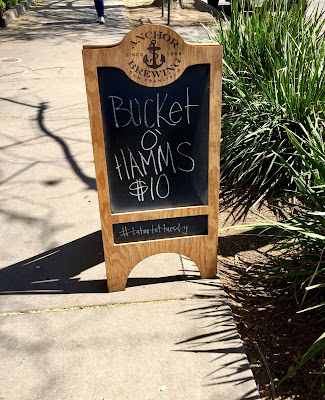 ANCHOR
SINCE 1896
BREWING
SAN FRANCISCO
BUCKET
O'
HAMMS
$10